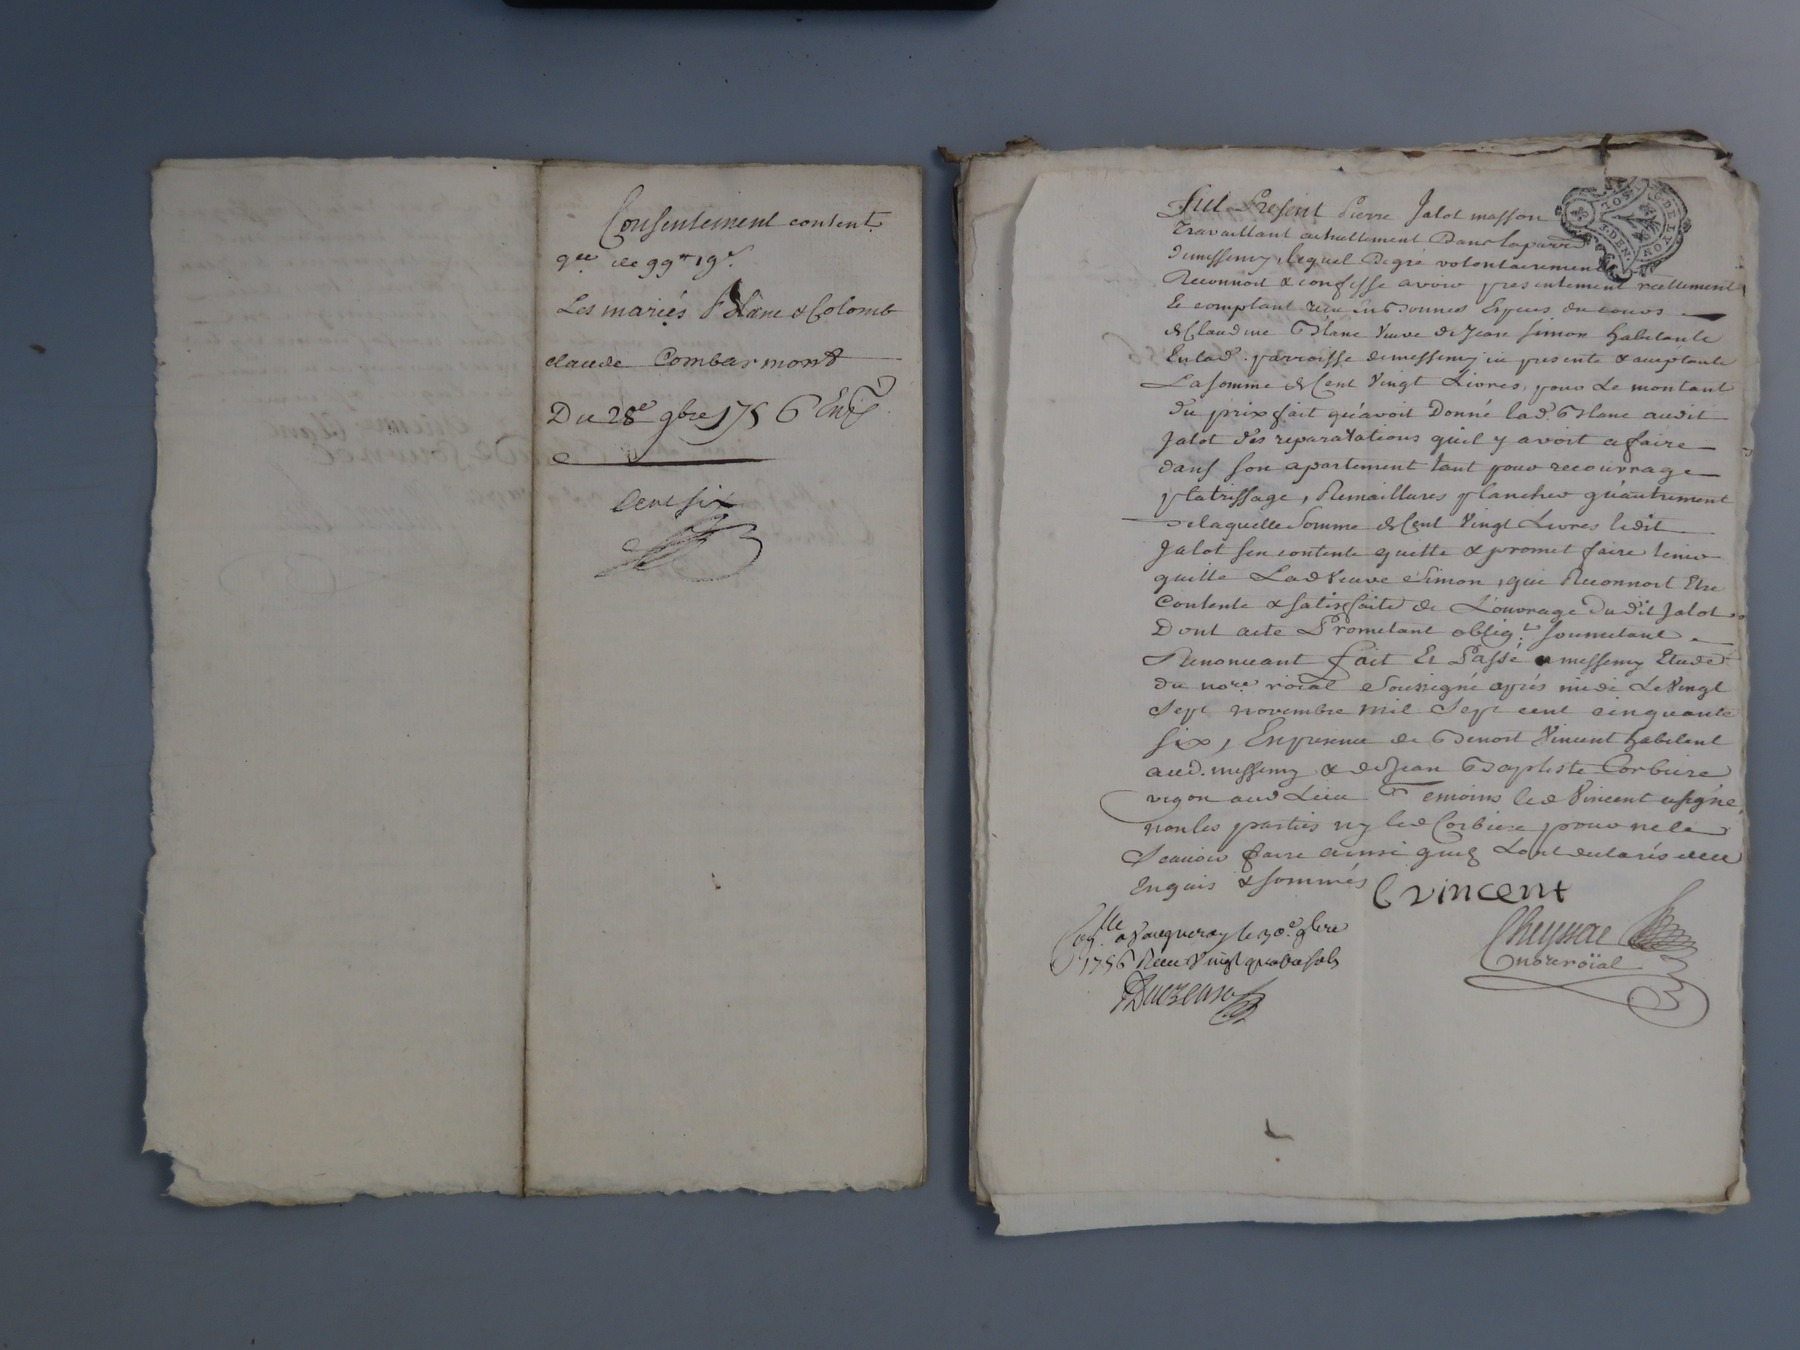 Consentement content.
qce de 99# 19s.
Les mariés Blanc & Colomb
claude Combarmont
Du 28e 9bre 1756 Exp
cent six
Fut Present Pierre Jalot masson
Travaillant actuellement Dans la parr
de messimy, lequel De gré volontairement
Reconnoit & confesse avoir presentement réellement
Et comptant reçu En Bonnes Espèces du cours
de Claudine Blanc Veuve de Jean Simon habitante
En lad. parroisse de messimy ici presente & acceptante
La somme de Cent Vingt Livres, pour Le montant
du prix fait qu'avoit Donné lad. Blanc audit
Jalot des reparations qu'il y avoit a faire
dans son apartement tant pour recouvrage
platrissage, Remaillures plancher qu'autrement
de laquelle Somme de Cent Vingt Livres ledit
Jalot s'en contente quitte & promet faire tenir
quitte Lad Veuve Simon, qui Reconnoit Etre
Contente & satisfaite de L'ouvrage Du dit Jalot
Dont acte Promettant obligt. soumettant
Renonceant fait Et Passé a messimy Etude
du nore. roial Soussigné après midi Le Vingt
Sept novembre mil Sept cent cinquante
six, En presence de Benoit Vincent habitant
aud. messimy & de Jean Baptiste Corbiere
vigon aud Lieu Temoins led Vincent a signé
non les parties ny led Corbiere pour ne le
Scavoir faire ainsi qu'ils L'ont declarés de ce
Enquis & sommés
C vincent
Conlle a Vaugneray le 30e 9bre
1756 Recu Vingt quatre sols
Cheynac
nore roïal